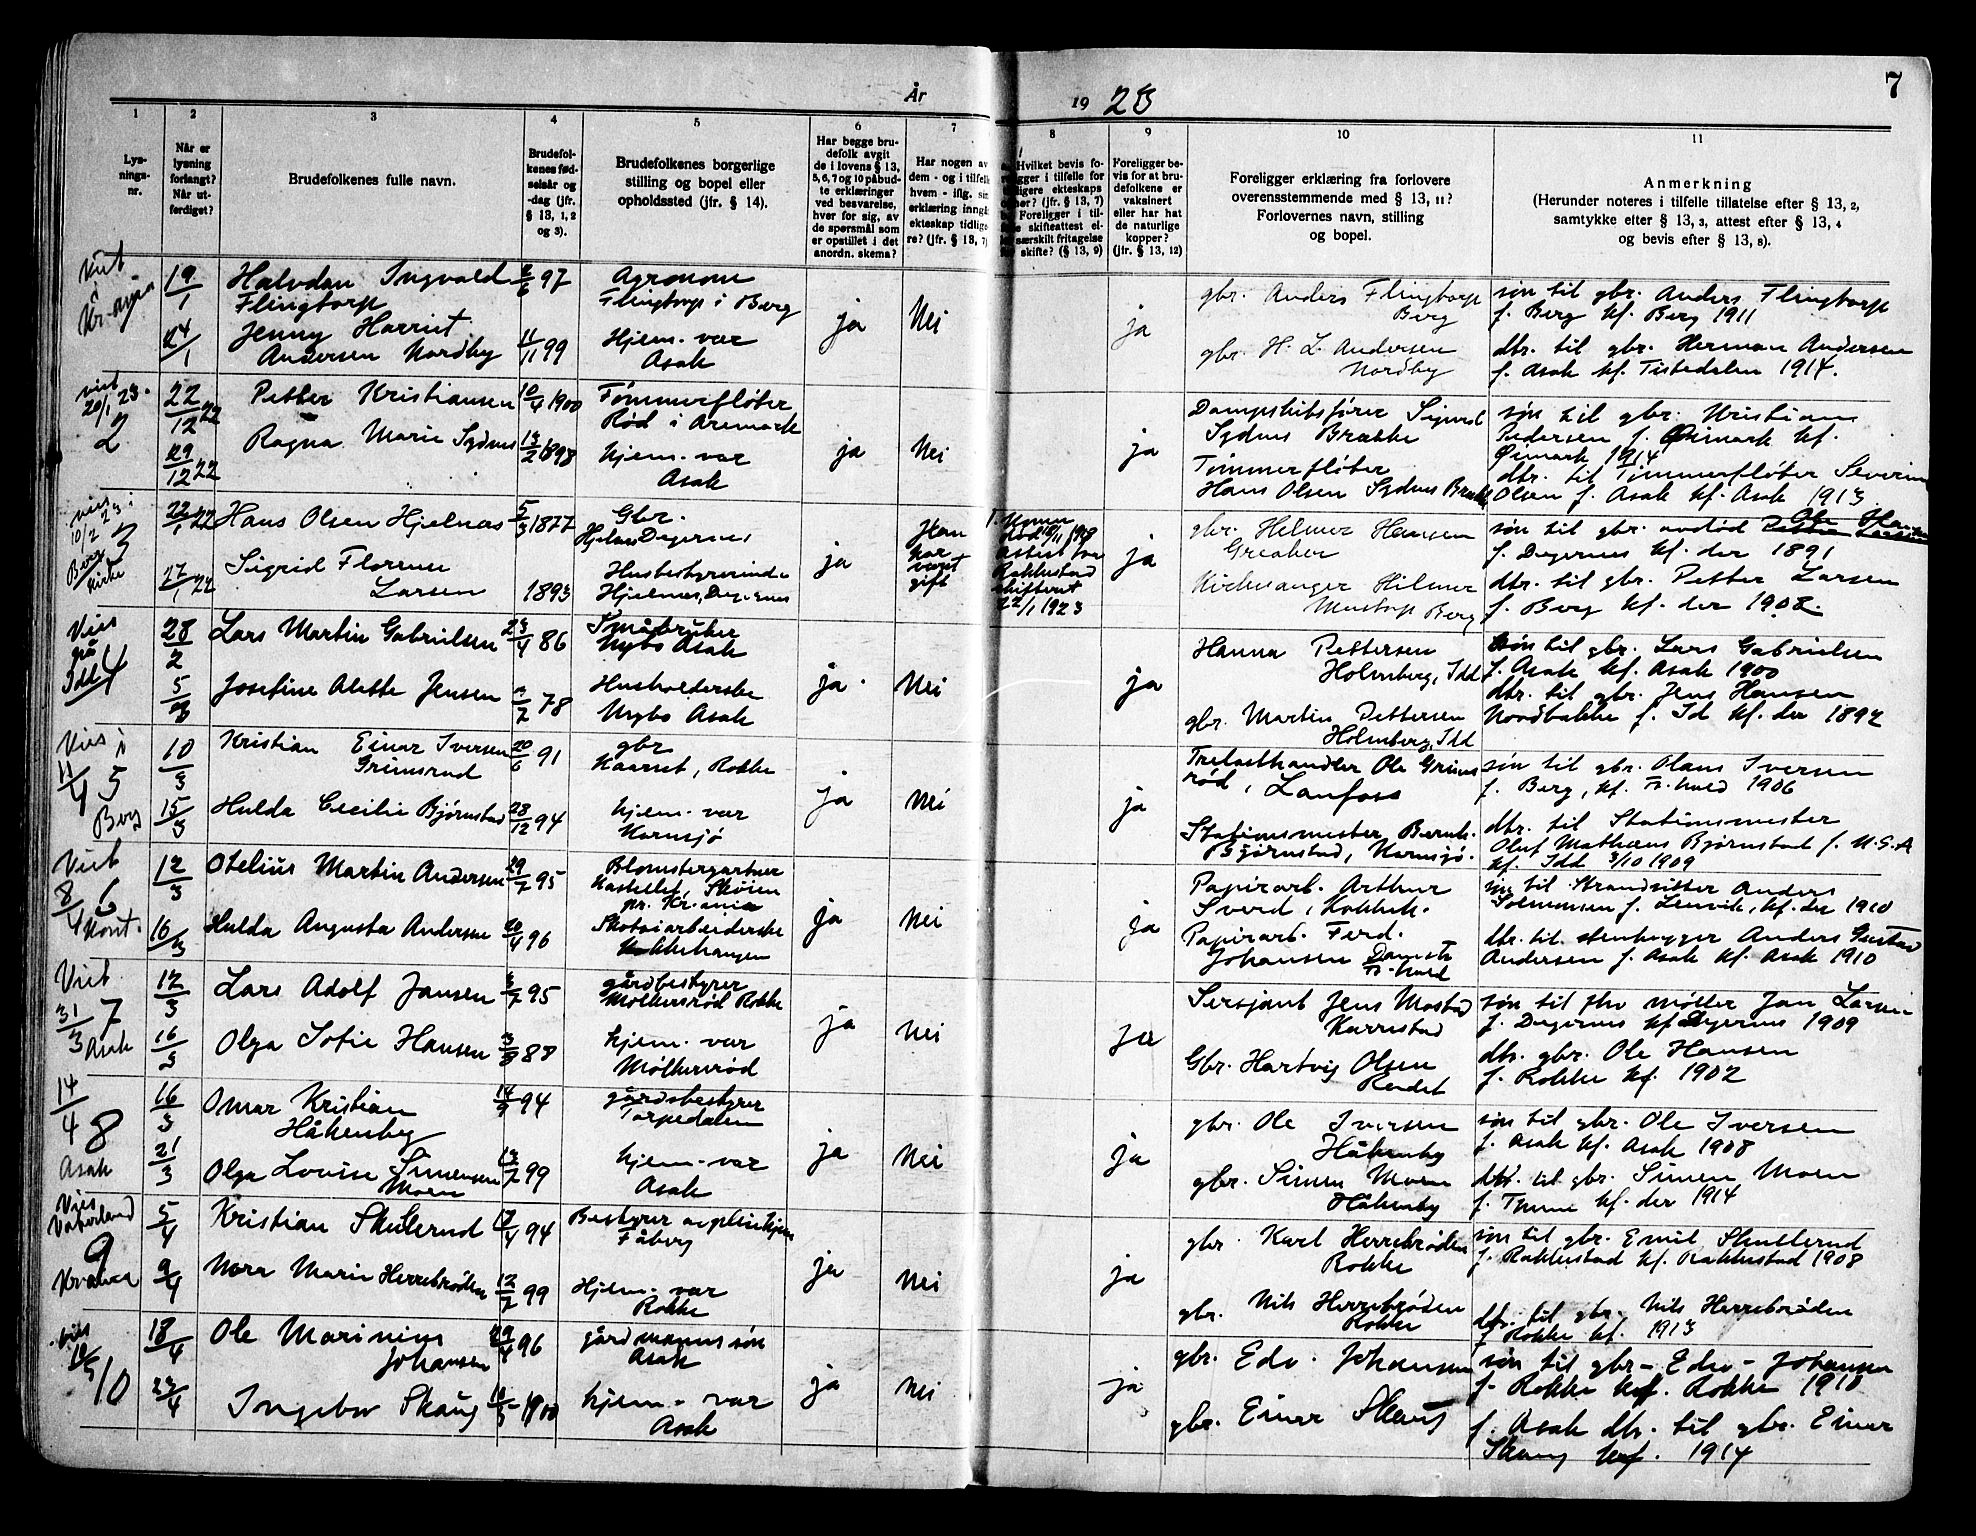 7
År 1923
1
2
3
4
5
6
7
8
9
10
11
Lys-
nings-
nr.
Når er
lysning
forlangt?
Når ut-
ferdiget?
Brudefolkenes fulle navn.
Brudefol-
kenes fød-
selsår og
-dag (jfr.
§ 13, 1, 2
og 3).
Brudefolkenes borgerlige
stilling og bopel eller
opholdssted (jfr. § 14).
Har begge bru-
defolk avgit
de i lovens § 13,
5, 6, 7 og 10 påbud-
te erklæringer
ved besvarelse,
hver for sig, av
de spørsmål som
er opstillet i det
anordn. skema?
Har nogen av
dem - og i tilfelle
hvem - iflg. sin
erklæring inngå
ekteskap tidlige
re? (jfr. § 13, 7)
Hvilket bevis fo-
religger i tilfelle for
tidligere ekteskaps
? (jfr. § 13, 7)
Foreligger i til-
skifteattest el-
særskilt fritagelse
for skifte? (§ 13, 9)
Foreligger be-
vis for at bru-
defolkene er
vaksinert
eller har hat
de naturlige
kopper?
(jfr. § 13, 12)
Foreligger erklæring fra forlovere
overensstemmende med § 13, 11?
Forlovernes navn, stilling
og bopel.
Anmerkning
(Herunder noteres i tilfelle tillatelse efter § 13, 2,
samtykke efter § 13, 3, attest efter § 13, 4
og bevis efter § 13, 8).
Viet
i
Kr-ania
19/1
Halvdan Ingvald
Flingtorp
2/6 97
Agronom
Flingtorp i Berg
ja
Nei
ja
gbr. Anders Flingtorp
Berg
søn til gbr. Anders Flingtorp
f. Berg kf. Berg 1911
24/1
Jenny Harriet
Andersen Nordby
11/11 99
Hjem. vær
Asak
gbr. H. L. Andersen
Nordby
dtr. til gbr. Herman Andersen
f. Asak kf. Tistedalen 1914.
viet
20/1 23.
2
22/12 22
Petter Kristiansen
10/4 1900
Tømmerfløter
Rød i Aremark
ja
Nei
ja
Dampskibsfører Sigurd
Sydnes Brække
søn til gbr. Kristian
Pedersen f. Øimark kf.
Øimark 1914
29/12 22
Ragna Marie Sydnes
13/2 1898
hjem. vær
Asak
Tømmerfløter
Hans Olsen Sydnes Brække
dtr. til Tømmerfløter Severin
Olsen f. Asak kf. Asak 1913.
vies
10/2 23 i
3
Berg
kirke
22/1 22
Hans Olsen Hjelnæs
5/3 1877
Gbr.
Hjelnæs Degernes
ja
Han
har
været
gift
død 10/11 1919
Attest fra
Rakkestad
skifteret
22/1 1923
ja
gbr. Helmer Hansen
Greaker
søn til gbr. avdød Ole Hansen
f. Degernes kf. der 1891
27/1 22
Sigrid Florence
Larsen
1893
Husbestyrerinde
Hjelnæs, Degernes
Kirkesanger Hilmer
Mustorp Berg
dtr. til gbr. Petter Larsen
f. Berg kf. der 1908.
Vies
på
Idd 4
28/2
Lars Martin Gabrielsen
23/4 86
Småbruker
Nybo Asak
ja.
Nei
ja
Hanna Pettersen
Holmberg, Idd
søn til gbr. Lars Gabrielsen
f. Asak kf. Asak 1900
5/3
Josefine Alette Jensen
2/7 78
Husholderske
Nybo Asak
gbr. Martin Pettersen
Holmberg, Idd
dtr. til gbr. Jens Hansen
Nordbakke f. Id kf. der 1892
Vies i
11/4 5
Berg
10/3
Kristian Einar Iversen
Grimsrud
20/6 91
gbr
Kaarud, Rokke
ja
Nei
ja
Trelasthandler Ole Grims
rød, Lanfoss
søn til gbr. Olaus Iversen
f. Berg, kf. Fr.hald 1906
15/3
Hulda Cecilie Bjørnstad
28/12 94
hjem. vær
Kornsjø
Stationsmester Bernh.
Bjørnstad, Kornsjø.
dtr. til Stationsmester
Oluf Mathæus Bjørnstad f. U.S.A
kf. Idd 3/10 1909
Viet
8/4 6
Kont.
12/3
Otelius Martin Andersen
29/7 95
Blomstergartner
Kastellet, Skøien
pr. Kr.ania
ja
Nei
ja
Papirarb. Arthur
Sverd, Kokkeh.
søn til Strandsitter Anders
f. Lenvik, kf. der 1910
16/3
Hulda Augusta Andersen
20/4 96
Skotøiarbeiderske
Kokkehaugen
Papirarb. Ferd.
Johansen Damstr.
Fr.hald
dtr. til stenhugger Anders Gustav
Andersen f. Asak kf. Asak 1910
Viet
31/3 7
Asak
12/3
Lars Adolf Jansen
3/7 95
gårdbestyrer
Mølkersrød Rokke
ja
Nei
ja
Sersjant Jens Mostad
Karrestad
søn til fhv møller Jan Larsen
f. Degernes kf Degernes 1909
16/3
Olga Sofie Hansen
3/8 88
hjem. vær
Mølkersrød
Gbr. Hartvig Olsen
Rendet
dtr. gbr. Ole Hansen
f. Rokke kf. 1902
14/4 8
Asak
16/3
Omar Kristian
Håkenby
14/9 94
gårdsbestyrer
Torpedalen
ja
Nei
ja
gbr. Ole Iversen
Håkenby
søn til gbr. Ole Iversen
f. Asak kf. Asak 1908
21/3
Olga Lovise Simensen
Moen
13/7 99
hjem. vær
Asak
gbr. Simen Moen
Håkenby
dtr. til gbr. Simen Moen
f. Trømø kf. der 1914
Vies
Vaterland
9
Kr.ania
5/4
Kristian Skulerud
17/4 94
Bestyrer av pleiehjem
Fåberg
ja
Nei
ja
gbr. Karl Herrebrøden
Rokke
søn til gbr. Emil Skullerud
f. Rakkestad kf. Rakkestad 1908
9/4
Nora Marie Herrebrøden
12/7 99
Hjem. vær
Rokke
gbr. Nils Herrebrøden
Rokke
dtr. til gbr. Nils Herrebrøden
f. Rokke kf. 1913
vies
10
18/4
Ole Marinius
Johansen
29/4 96
gårdmanns søn
Asak
ja
Nei
ja
gbr. Edv. Johansen
søn til gbr- Edv- Johansen
f. Rokke kf. Rokke 1910
23/4
Ingebor Skaug
1900
hjem. vær
Asak
gbr. Einar Skaug
f. Asak dtr. til gbr. Einar
Skaug kf. 1914